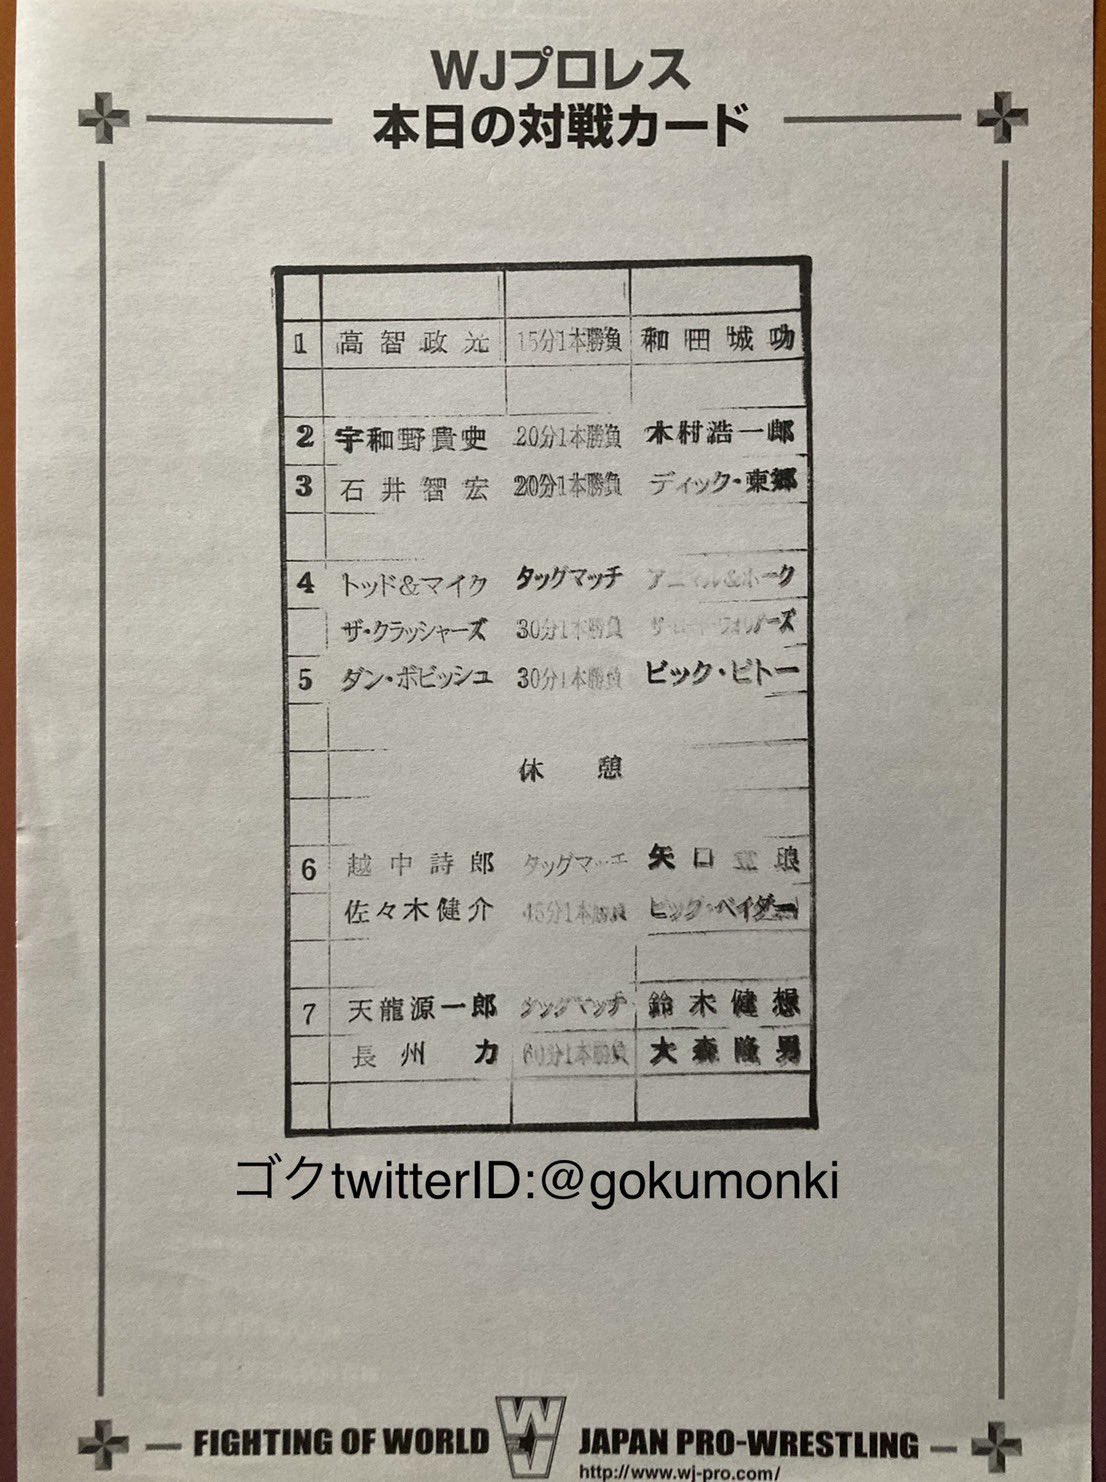 WJプロレス
本日の対戦カード
1 高智政光 15分1本勝負 和田城功
2 宇和野貴史 20分1本勝負 木村浩一郎
3 石井智宏 20分1本勝負 ディック・東郷
4 トッド&マイク タッグマッチ アニマル&ホーク
ザ・クラッシャーズ 30分1本勝負 ザ・ロード・ウォリアーズ
5 ダン・ボビッシュ 30分1本勝負 ビック・ビトー
休憩
6 越中詩郎 タッグマッチ 矢口壹琅
佐々木健介 45分1本勝負 ビッグ・ベイダー
7 天龍源一郎 タッグマッチ 鈴木健想
長州力 60分1本勝負 大森隆男
ゴクtwitterID:@gokumonki
FIGHTING OF WORLD W JAPAN PRO-WRESTLING
http://www.wj-pro.com/